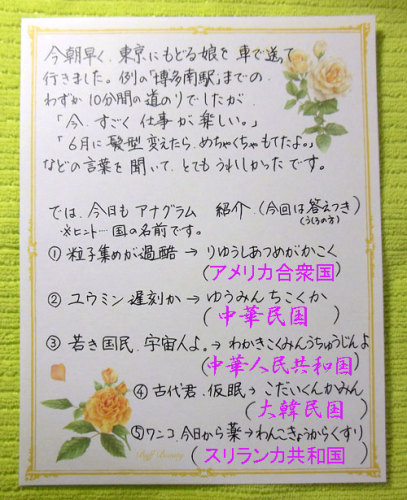 今朝早く、東京にもどる娘を車で送って
行きました。例の「博多南駅」までの
わずか10分間の道のりでしたが
「今、すごく仕事が楽しい。」
「6月に髪型変えたら、めちゃくちゃもてたよ。」
などの言葉を聞いて、とてもうれしかったです。
では、今日もアナグラム 紹介、(今回は答えつき)
(うしろの方)
※ヒント…国の名前です。
①粒子集めが過酷→りゅうしあつめがかこく
(アメリカ合衆国)
②ユウミン遅刻か→ゆうみんちこくか
(中華民国)
③若き国民、宇宙人よ。→わかきこくみんうちゅうじんよ
(中華人民共和国)
④古代君、仮眠→こだいくんかみん
(大韓民国)
⑤ワンコ、今日から薬→わんこきょうからくすり
(スリランカ共和国)
Buff Beauty